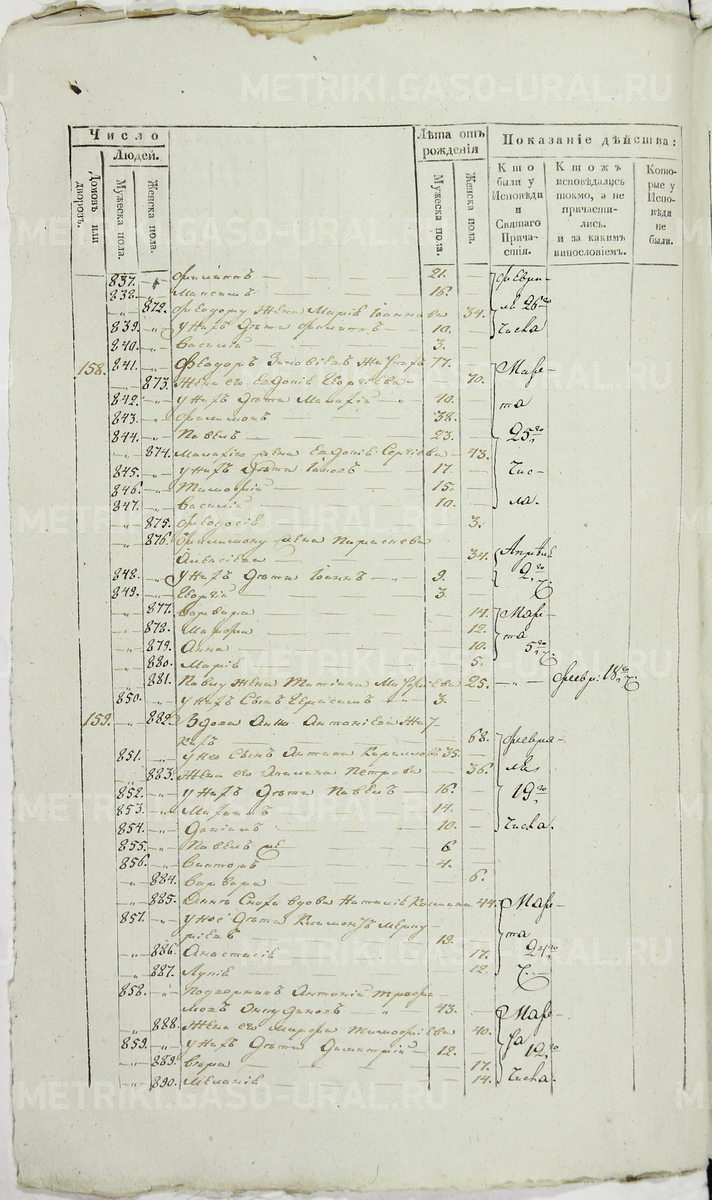 METRIKI.GASO-URAL.RU
Число
Людей.
Домовъ или дворовъ.
Мужеска пола.
Женска пола.
Лѣта отъ рожденія
Мужеска пола.
Женска пола.
Показаніе дѣйства:
Кто были у Исповѣди и Святаго Причастія.
Ктожъ исповѣдались токмо, а не причастились. и за какимъ винословіемъ.
Которые у Исповѣди не были.
837. Филиппъ 21.
838. Максимъ 16.
872. Феодору жена Марія Іоаннова 34.
839. У нихъ дѣти Филиппъ 10.
840. Василій 3.
Февраля 26го числа
158. 841. Феодоръ Зиновіевъ 77.
873. Жена его Евдокія Георгіева 70.
842. У нихъ дѣти Макарій 40.
843. Филимонъ 38.
844. Павелъ 23.
874. Макарію жена Евдокія Сергіева 43.
845. У нихъ дѣти 17.
846. Тимофей 15.
847. Василій 10.
875. Феодосія 3.
Марта 25го числа.
876. Филимону жена Параскева Алексіева 34.
848. У нихъ дѣти Іоаннъ 9.
849. Георгій 3.
Апрѣля 2го ч.
877. Варвара 14.
878. Марфа 12.
879. Анна 10.
880. Марія 5.
Марта 5го ч.
881. Павлу жена Татіана 25. Февр: 18го ч.
850. У нихъ сынъ Герасимъ 3.
159. 882. Вдова Анна Антоніева 68.
851. У нея сынъ Антипа Кириллов 35.
883. Жена его Петрова 36.
852. У нихъ дѣти Павелъ 16.
853. 14.
854. Даніилъ 10.
855. Павелъ же 6
856. Викторъ 4.
884. Варвара 6.
Февраля 19го числа.
885. Аннѣ сноха вдова Наталія 44.
857. У ней дѣти 19.
886. Анастасія 17.
887. Лукія 12.
Марта 24го ч.
858. Подворникъ Антоній 43.
888. Жена его Марфа Тимофеева 40.
859. У нихъ дѣти Димитрій 12.
889. Вѣра 17.
890. Меланія 14.
Марта 12го числа.